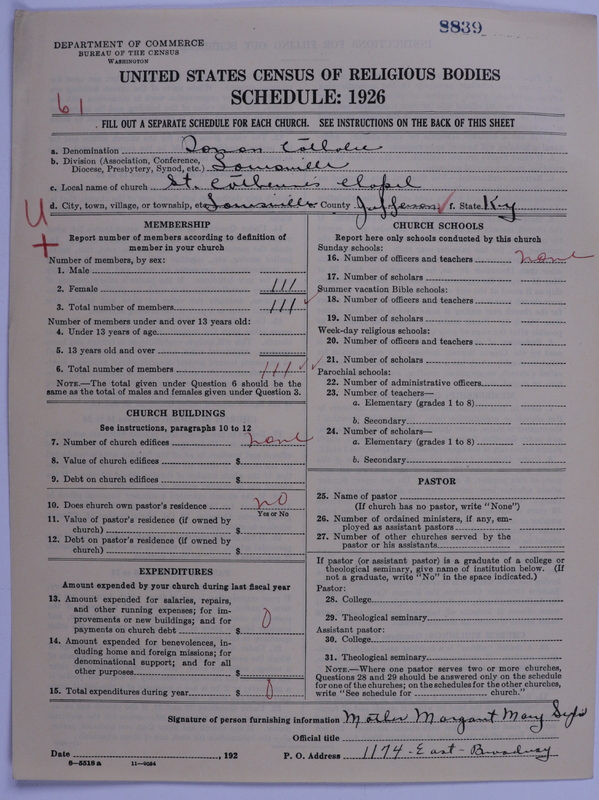 8839
DEPARTMENT OF COMMERCE
BUREAU OF THE CENSUS
WASHINGTON
UNITED STATES CENSUS OF RELIGIOUS BODIES
SCHEDULE: 1926
61
FILL OUT A SEPARATE SCHEDULE FOR EACH CHURCH. SEE INSTRUCTIONS ON THE BACK OF THIS SHEET
a. Denomination Roman Catholic
b. Division (Association, Conference, Diocese, Presbytery, Synod, etc.) Louisville
c. Local name of church St. Catherine's Chapel
d. City, town, village, or township, etc. Louisville County Jefferson f. State Ky
U
+
MEMBERSHIP
Report number of members according to definition of
member in your church
Number of members, by sex:
1. Male
2. Female 111
3. Total number of members 111
Number of members under and over 13 years old:
4. Under 13 years of age
5. 13 years old and over
6. Total number of members 111
NOTE.—The total given under Question 6 should be the
same as the total of males and females given under Question 3.
CHURCH BUILDINGS
See instructions, paragraphs 10 to 12
7. Number of church edifices none
8. Value of church edifices $
9. Debt on church edifices $
10. Does church own pastor's residence? no
Yes or No
11. Value of pastor's residence (if owned by
church) $
12. Debt on pastor's residence (if owned by
church) $
EXPENDITURES
Amount expended by your church during last fiscal year
13. Amount expended for salaries, repairs,
and other running expenses; for im-
provements or new buildings; and for
payments on church debt $ 0
14. Amount expended for benevolences, in-
cluding home and foreign missions; for
denominational support; and for all
other purposes $
15. Total expenditures during year $ 0
CHURCH SCHOOLS
Report here only schools conducted by this church
Sunday schools:
16. Number of officers and teachers none
17. Number of scholars
Summer vacation Bible schools:
18. Number of officers and teachers
19. Number of scholars
Week-day religious schools:
20. Number of officers and teachers
21. Number of scholars
Parochial schools:
22. Number of administrative officers
23. Number of teachers—
a. Elementary (grades 1 to 8)
b. Secondary
24. Number of scholars—
a. Elementary (grades 1 to 8)
b. Secondary
PASTOR
25. Name of pastor
(If church has no pastor, write "None")
26. Number of ordained ministers, if any, em-
ployed as assistant pastors
27. Number of other churches served by the
pastor or his assistants
If pastor (or assistant pastor) is a graduate of a college or
theological seminary, give name of institution below. (If
not a graduate, write "No" in the space indicated.)
Pastor:
28. College
29. Theological seminary
Assistant pastor:
30. College
31. Theological seminary
NOTE.—Where one pastor serves two or more churches,
Questions 28 and 29 should be answered only on the schedule
for one of the churches; on the schedules for the other churches,
write "See schedule for church."
Signature of person furnishing information Mother Margaret Mary
Official title
Date , 192 P. O. Address 1174 - East - Broadway
8—5518 a 11—9084